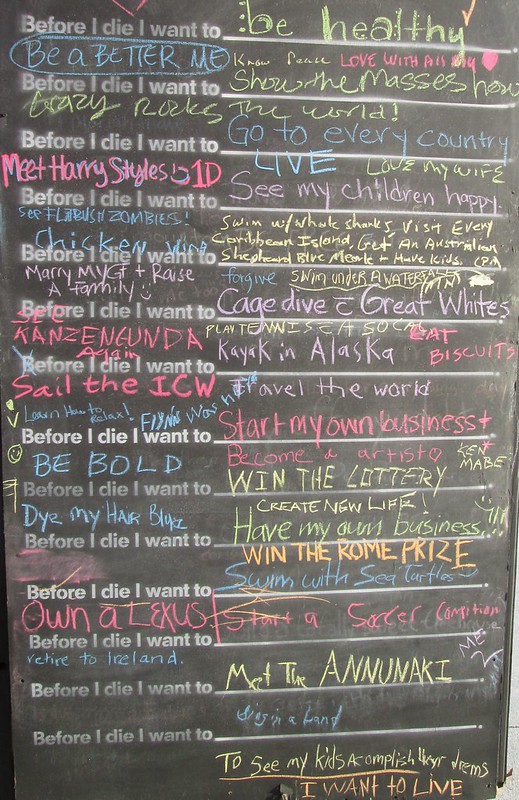 Before I die I want to be healthy
Be a BETTER ME
Know Peace LOVE WITH All My
Before I die I want to Show the Masses how
Crazy Rocks The world!
Before I die I want to Go to every country
LIVE LOVE MY WIFE
Meet Harry Styles 1D
Before I die I want to See my children happy.
SEE FLATBUSH ZOMBIES!
Swim w/ whale sharks, Visit Every
Before I die I want to Caribbean Island, Get An Australian
Chicken Wing
Shepherd Blue Meante + Have kids,
Marry My GF + Raise
A family
forgive SWIM UNDER A WATERFALL
Before I die I want to Cage dive c̄ Great Whites
SEE
KANZENGUNDA
Again
PLAY TENNIS EAT
EAT
BISCUITS
Before I die I want to Kayak in Alaska
Sail the ICW
Travel the world
Learn How to Relax! FLYNN Was here
Before I die I want to Start my own business
BE BOLD
Become a artist
KEN
MABE
Before I die I want to WIN THE LOTTERY
CREATE NEW LIFE!
Dye My HAIR Blue
Before I die I want to Have my own business!!!
WIN THE ROME PRIZE
Before I die I want to Swim with Sea Turtles
Own a LEXUS
Start a Soccer
Before I die I want to
ME
retire to Ireland.
Before I die I want to Meet The ANNUNAKI
Sing in a band
Before I die I want to
To See my kids Acomplish their drems
I WANT TO LIVE